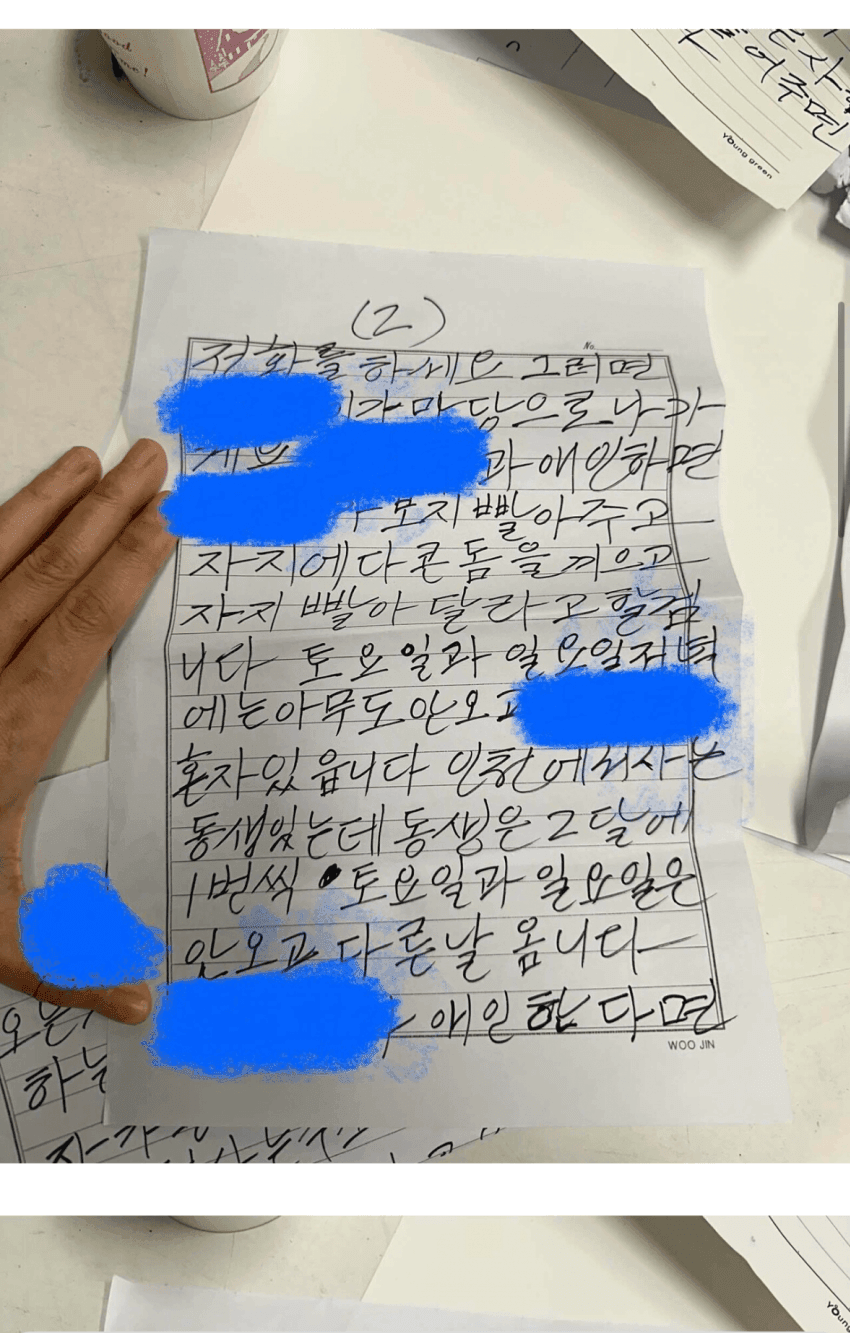 어주면
Young green
(2)
No.
저화를 하세요 그러면
가 마당으로 나가
과 애인하면
보지 빨아주고
자지에다 콘돔을 끼우고
자지 빨아 달라고 할겁
니다 토요일과 일요일저녁
에는 아무도 안오고
혼자있읍니다 인천에서사는
동생있는데 동생은 2달에
1번씩 토요일과 일요일은
안오고 다른날 옵니다
애인한다면
WOO JIN
오는
하는